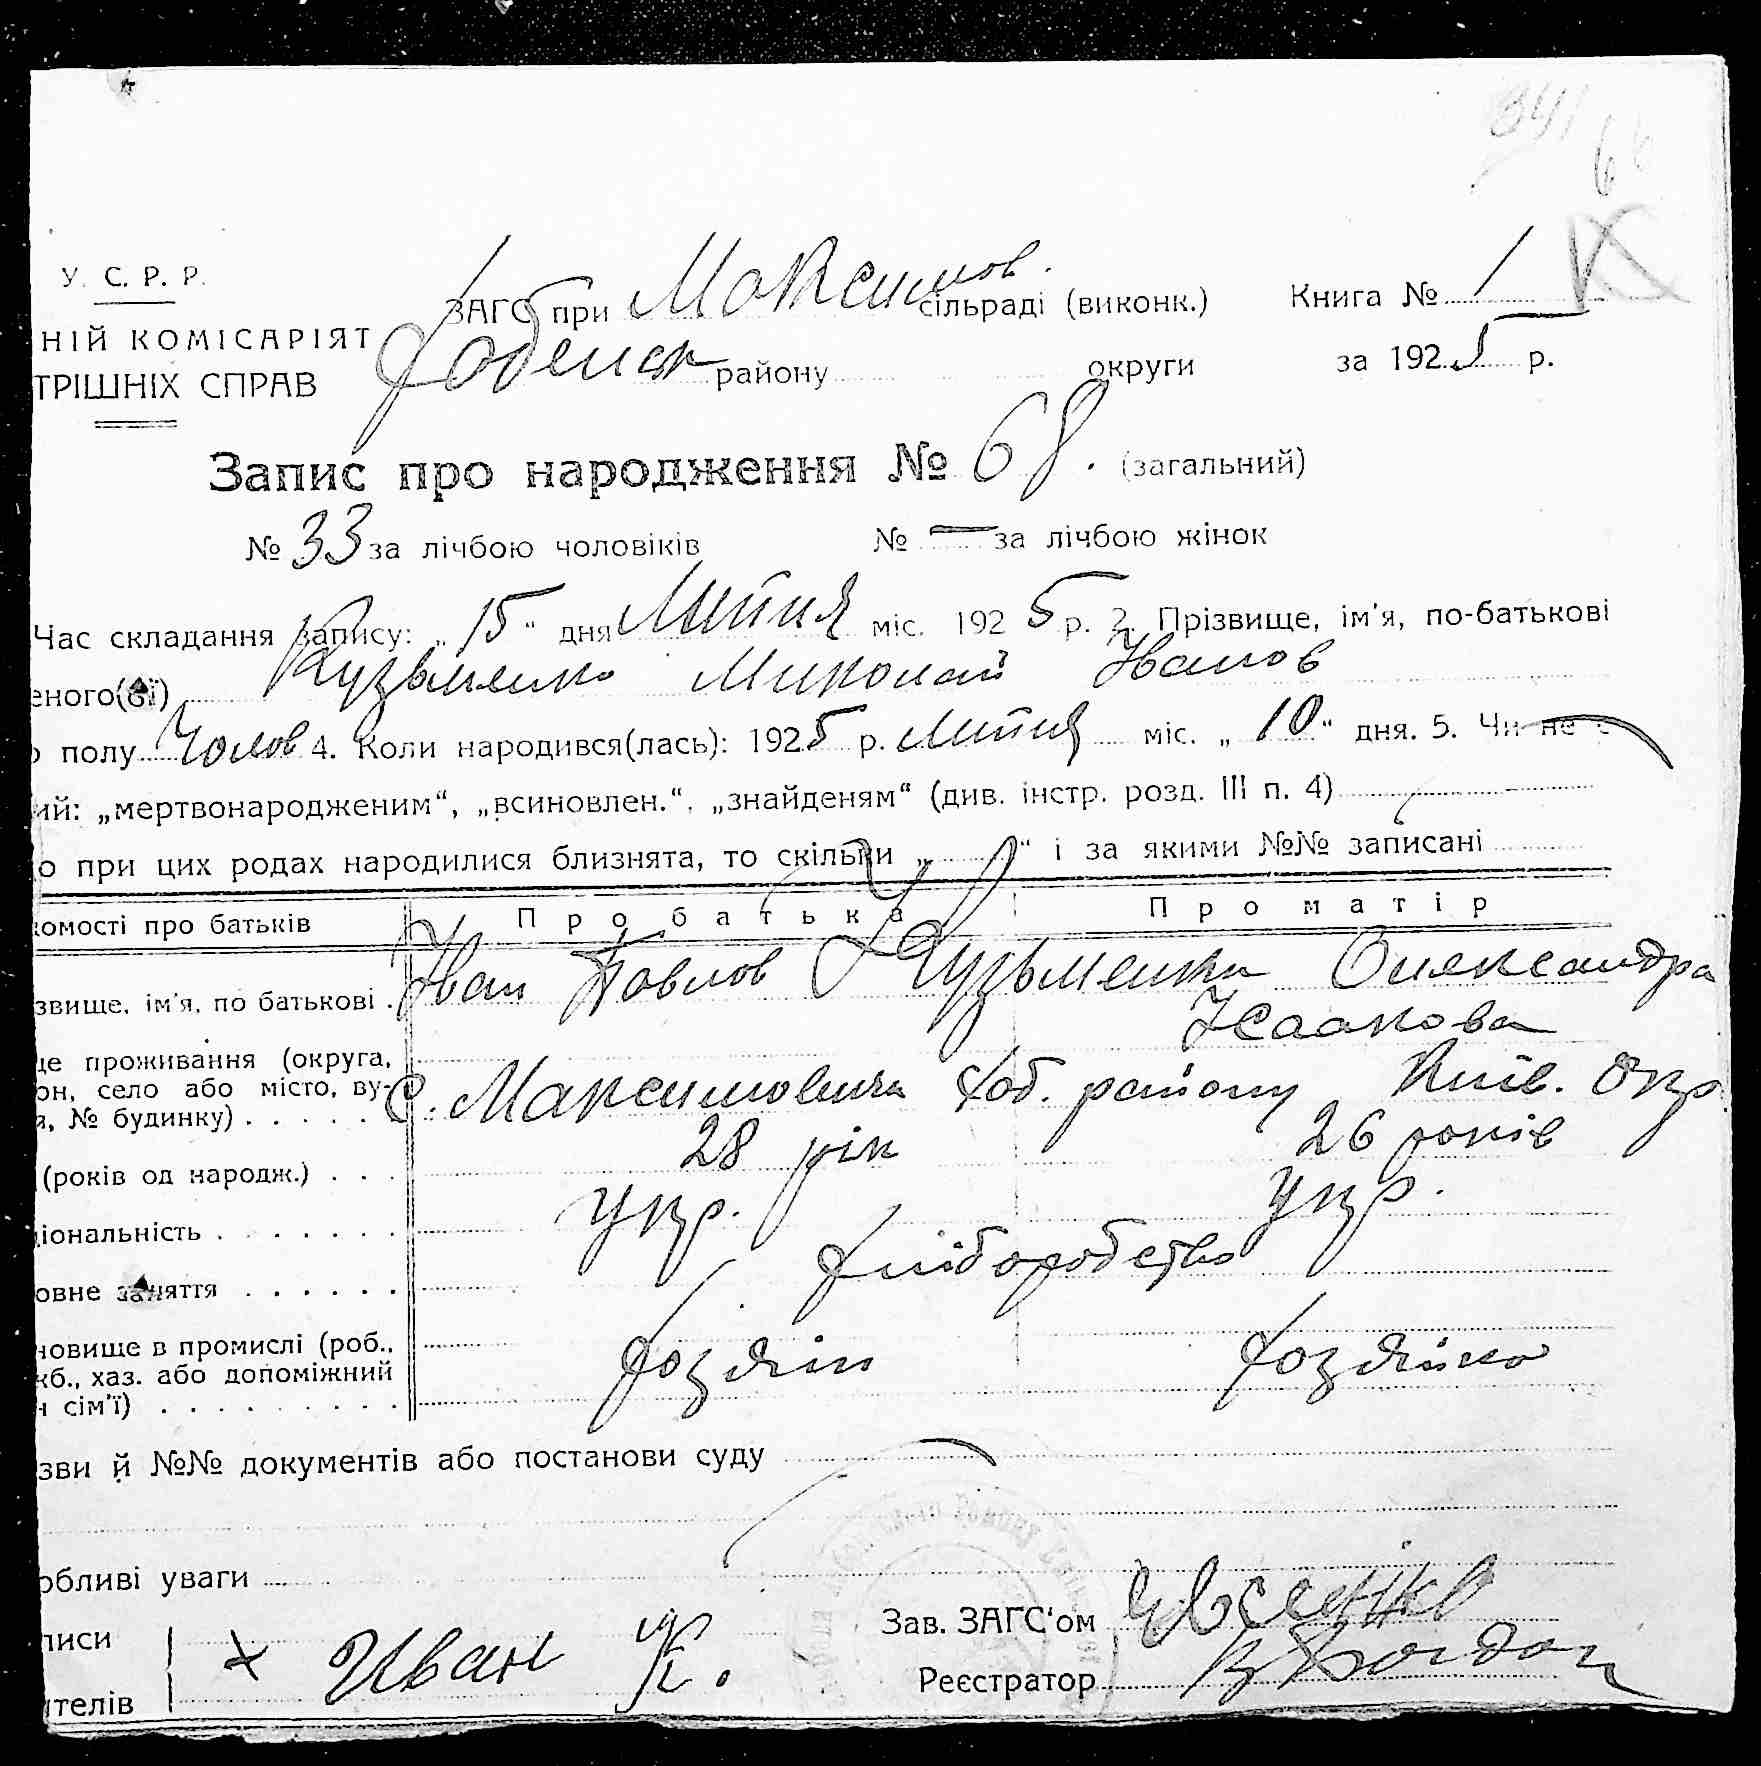 341
66
К
У. С. Р. Р.
ЗАГС при Максимов. сільраді (виконк.) Книга № 1
НІЙ КОМІСАРІЯТ
Хабенськ району округи за 1925 р.
ТРІШНІХ СПРАВ
Запис про народження № 68. (загальний)
№ 33 за лічбою чоловіків № — за лічбою жінок
Час складання запису: „15“ дня Липня міс. 1925 р. 2. Прізвище, ім'я, по-батькові
еного(ої) Кузьменко Миколай Іванов
о полу Чолов 4. Коли народився(лась): 1925 р. Липня міс. „10“ дня. 5. Чи не є
ий: „мертвонародженим“, „всиновлен.“, „знайденям“ (див. інстр. розд. III п. 4)
о при цих родах народилися близнята, то скільки „ “ і за якими №№ записані
омості про батьків Про батька Про матір
звище, ім'я, по батькові . Іван Павлов Кузьменки Олександра
Ісаакова
це проживання (округа,
он, село або місто, ву- с. Максимовичи Хаб. району Київ. Окр.
я, № будинку) . . . . .
(років од народж.) . . . 28 рік 26 років
ціональність . . . . . . . Укр. Укр.
овне заняття . . . . . . Хліборобство
новище в промислі (роб.,
жб., хаз. або допоміжний Хозяїн Хозяйка
н сім'ї) . . . . . . . . .
зви й №№ документів або постанови суду
обливі уваги
писи Зав. ЗАГС'ом
+ Иван К.
ителів Реєстратор